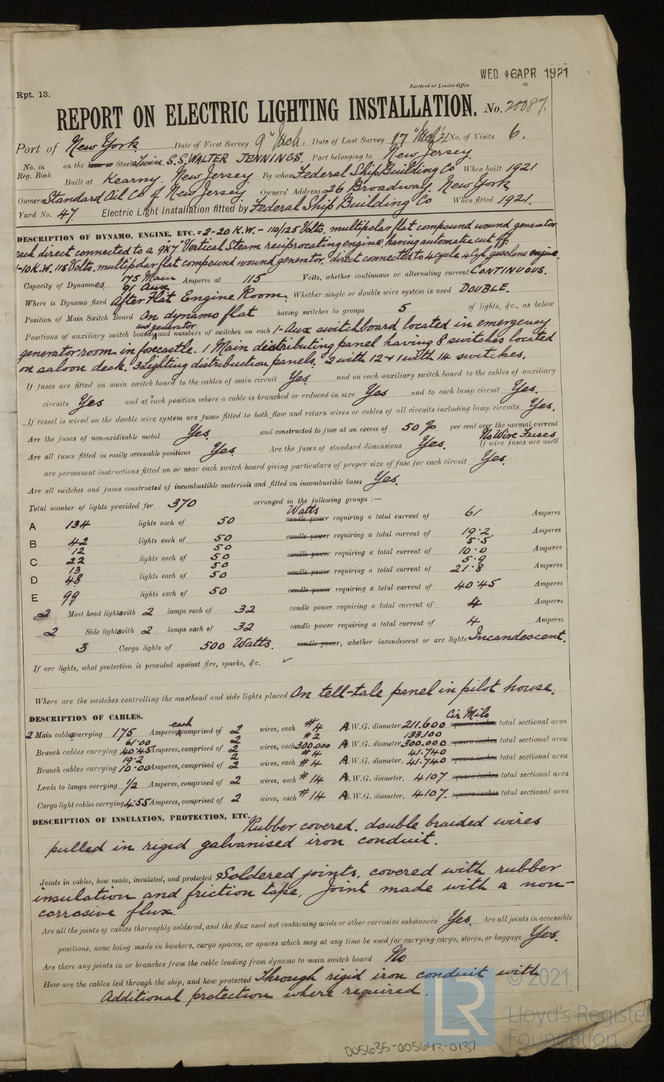 Rpt. 13.
Received at London Office
WED. 6 APR. 1921
REPORT ON ELECTRIC LIGHTING INSTALLATION. No. 20087.
Port of New York Date of First Survey 9th Mch. Date of Last Survey 17 No. of Visits 6.
No. in Reg. Book on the Steel Twin S.S. WALTER JENNINGS Port belonging to New Jersey
Built at Kearny, New Jersey By whom Federal Ship Building Co When built 1921
Owners Standard Oil Co of New Jersey Owners' Address 26 Broadway, New York
Yard No. 47 Electric Light Installation fitted by Federal Ship Building Co When fitted 1921.
DESCRIPTION OF DYNAMO, ENGINE, ETC. - 2-20 K.W. - 110/125 Volts, multipolar flat compound wound generator
each direct connected to a 9x7 Vertical Steam reciprocating engine, having automatic cut off.
1-10 K.W. 115 Volts, multipolar flat compound wound generator, direct connected to 4 cycle 4 Cyl. gasoline engine.
Capacity of Dynamoes 175 Main 91 Aux Amperes at 115 Volts, whether continuous or alternating current CONTINUOUS.
Where is Dynamo fixed After Flat Engine Room Whether single or double wire system is used DOUBLE.
Position of Main Switch Board On dynamo flat having switches to groups 5 of lights, &c., as below
Positions of auxiliary switch boards and generator and numbers of switches on each 1-Aux switchboard located in emergency
generator room in forecastle. 1 Main distributing panel having 8 switches located
on saloon deck. 3 Lighting distribution panels, 2 with 12 & 1 with 14 switches.
If fuses are fitted on main switch board to the cables of main circuit Yes and on each auxiliary switch board to the cables of auxiliary
circuits Yes and at each position where a cable is branched or reduced in size Yes and to each lamp circuit Yes.
If vessel is wired on the double wire system are fuses fitted to both flow and return wires or cables of all circuits including lamp circuits Yes.
Are the fuses of non-oxidizable metal Yes and constructed to fuse at an excess of 50 % per cent over the normal current
Are all fuses fitted in easily accessible positions Yes Are the fuses of standard dimensions Yes. If wire fuses are used No Wire Fuses
are permanent instructions fitted on or near each switch board giving particulars of proper size of fuse for each circuit Yes
Are all switches and fuses constructed of incombustible materials and fitted on incombustible bases Yes.
Total number of lights provided for 370 arranged in the following groups :—
A 134 lights each of 50 Watts candle power requiring a total current of 61 Amperes
B 42 12 lights each of 50 50 candle power requiring a total current of 19.2 5.5 Amperes
C 22 13 lights each of 50 50 candle power requiring a total current of 10.0 5.9 Amperes
D 48 lights each of 50 candle power requiring a total current of 21.8 Amperes
E 99 lights each of 50 candle power requiring a total current of 40.45 Amperes
2 Mast head lights with 2 lamps each of 32 candle power requiring a total current of 4 Amperes
2 Side lights with 2 lamps each of 32 candle power requiring a total current of 4 Amperes
3 Cargo lights of 500 Watts. candle power, whether incandescent or arc lights Incandescent.
If arc lights, what protection is provided against fire, sparks, &c. ✓
Where are the switches controlling the masthead and side lights placed On tell-tale panel in pilot house.
DESCRIPTION OF CABLES.
2 Main cables carrying 175 Amperes each, comprised of 2 wires, each #4 A.W.G. diameter, 211.600 Cir Mils square inches total sectional area
Branch cables carrying 61.00 40.45 Amperes, comprised of 2 2 wires, each #2 300,000 A.W.G. diameter, 133,100 300.000 square inches total sectional area
Branch cables carrying 19.2 10.00 Amperes, comprised of 2 2 wires, each #4 #4 A.W.G. diameter, 41.740 41.740 square inches total sectional area
Leads to lamps carrying 1/2 Amperes, comprised of 2 wires, each #14 A.W.G. diameter, 4107 square inches total sectional area
Cargo light cables carrying 4.55 Amperes, comprised of 2 wires, each #14 A.W.G. diameter, 4107. square inches total sectional area
DESCRIPTION OF INSULATION, PROTECTION, ETC. Rubber covered, double braided wires
pulled in rigid galvanised iron conduit.
Joints in cables, how made, insulated, and protected Soldered joints, covered with rubber
insulation and friction tape, Joint made with a non-
corrosive flux.
Are all the joints of cables thoroughly soldered, and the flux used not containing acids or other corrosive substances Yes. Are all joints in accessible
positions, none being made in bunkers, cargo spaces, or spaces which may at any time be used for carrying cargo, stores, or baggage Yes.
Are there any joints in or branches from the cable leading from dynamo to main switch board No
How are the cables led through the ship, and how protected Through rigid iron conduit with
Additional protection where required.
© 2021
LR Lloyd's Register
Foundation
005635-005642-0137